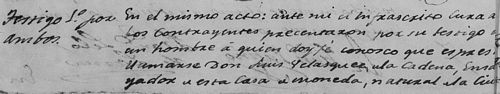 Testigo 1º por
ambos.
En el mismo acto: ante mi el infrascrito Cura
los contrayentes presentaron por su testigo a
un hombre á quien doy fe conosco que espres
llamarse Don Luis Velasquez de la Cadena, Ensa
yador de esta Casa de Moneda, natural de la Ciu